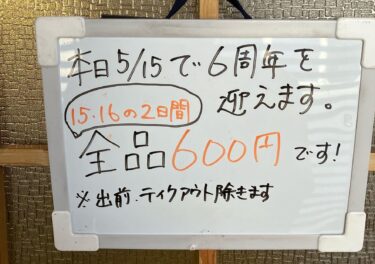 本日5/15で6周年を
迎えます。
15.16の2日間
全品600円です!
※出前.テイクアウト除きます